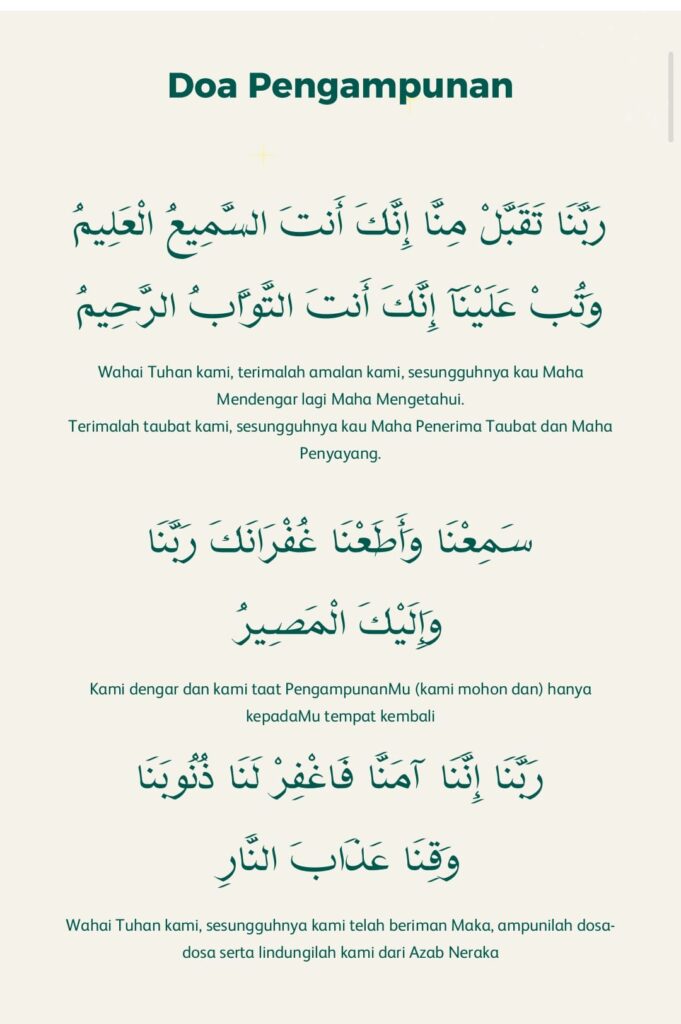 Doa Pengampunan
رَبَّنَا تَقَبَّلْ مِنَّا إِنَّكَ أَنتَ السَّمِيعُ الْعَلِيمُ
وَتُبْ عَلَيْنَآ إِنَّكَ أَنتَ التَّوَّابُ الرَّحِيمُ
Wahai Tuhan kami, terimalah amalan kami, sesungguhnya kau Maha
Mendengar lagi Maha Mengetahui.
Terimalah taubat kami, sesungguhnya kau Maha Penerima Taubat dan Maha
Penyayang.
سَمِعْنَا وَأَطَعْنَا غُفْرَانَكَ رَبَّنَا
وَإِلَيْكَ الْمَصِيرُ
Kami dengar dan kami taat PengampunanMu (kami mohon dan) hanya
kepadaMu tempat kembali
رَبَّنَا إِنَّنَا آمَنَّا فَاغْفِرْ لَنَا ذُنُوبَنَا
وَقِنَا عَذَابَ النَّارِ
Wahai Tuhan kami, sesungguhnya kami telah beriman Maka, ampunilah dosa-
dosa serta lindungilah kami dari Azab Neraka